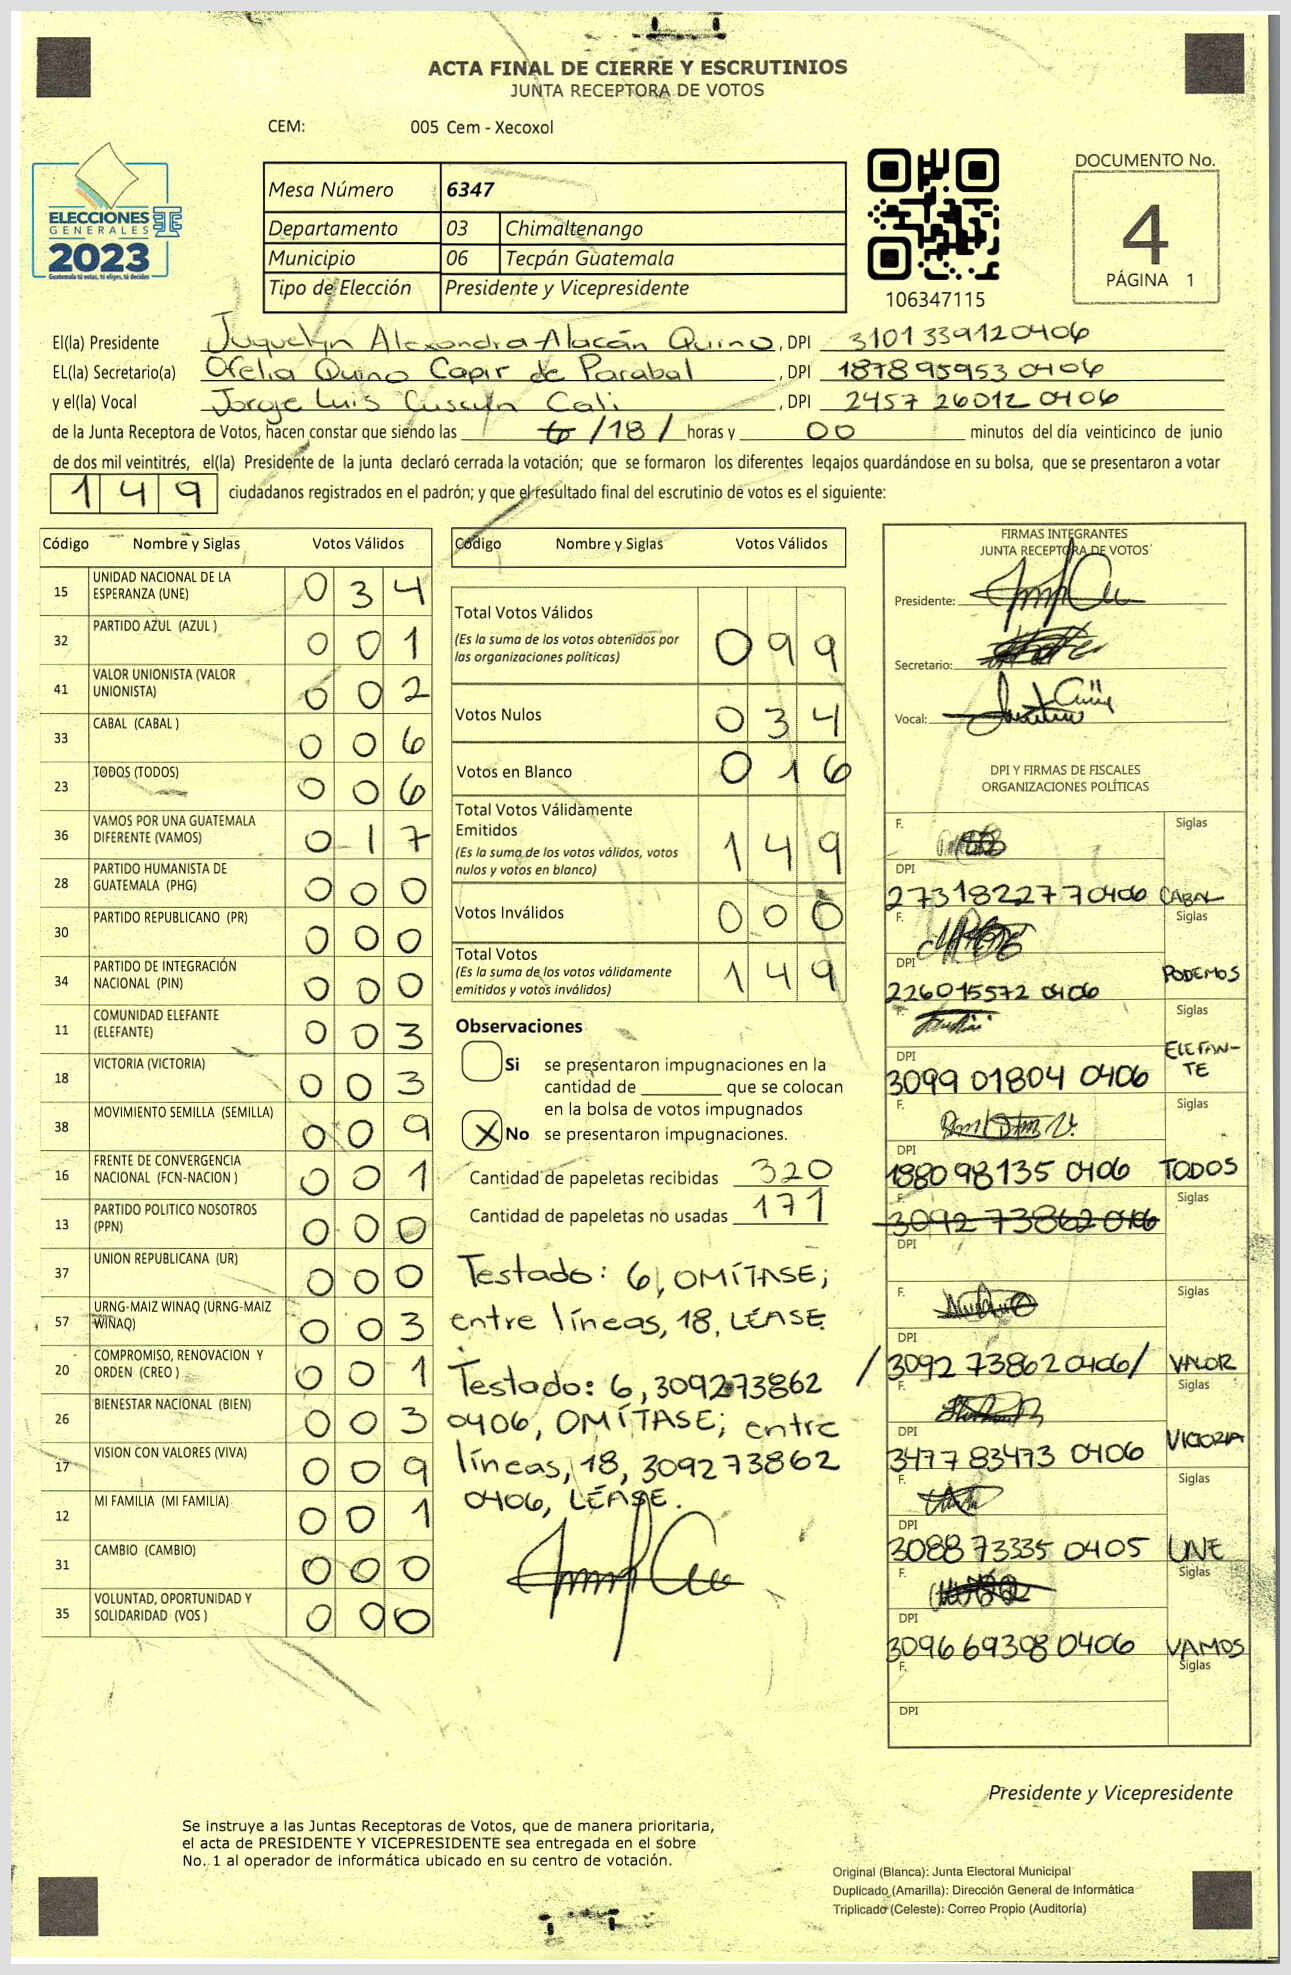 ACTA FINAL DE CIERRE Y ESCRUTINIOS
JUNTA RECEPTORA DE VOTOS
CEM: 005 Cem - Xecoxol
ELECCIONES
GENERALES
2023
Guatemala tú votas, tú eliges, tú decides
Mesa Número 6347
Departamento 03 Chimaltenango
Municipio 06 Tecpán Guatemala
Tipo de Elección Presidente y Vicepresidente
106347115
DOCUMENTO No.
4
PÁGINA 1
El(la) Presidente Juquelyn Alexandra Alacán Quino, DPI 3101339120406
EL(la) Secretario(a) Ofelia Quino Capir de Parabal, DPI 187895953 0406
y el(la) Vocal Jorge Luis Cuscun Cali, DPI 2457 26012 0406
de la Junta Receptora de Votos, hacen constar que siendo las 6 /18/ horas y 00 minutos del día veinticinco de junio
de dos mil veintitrés, el(la) Presidente de la junta declaró cerrada la votación; que se formaron los diferentes legajos guardándose en su bolsa, que se presentaron a votar
149 ciudadanos registrados en el padrón; y que el resultado final del escrutinio de votos es el siguiente:
Código Nombre y Siglas Votos Válidos
15 UNIDAD NACIONAL DE LA ESPERANZA (UNE) 0 3 4
32 PARTIDO AZUL (AZUL ) 0 0 1
41 VALOR UNIONISTA (VALOR UNIONISTA) 0 0 2
33 CABAL (CABAL ) 0 0 6
23 TODOS (TODOS) 0 0 6
36 VAMOS POR UNA GUATEMALA DIFERENTE (VAMOS) 0 1 7
28 PARTIDO HUMANISTA DE GUATEMALA (PHG) 0 0 0
30 PARTIDO REPUBLICANO (PR) 0 0 0
34 PARTIDO DE INTEGRACIÓN NACIONAL (PIN) 0 0 0
11 COMUNIDAD ELEFANTE (ELEFANTE) 0 0 3
18 VICTORIA (VICTORIA) 0 0 3
38 MOVIMIENTO SEMILLA (SEMILLA) 0 0 9
16 FRENTE DE CONVERGENCIA NACIONAL (FCN-NACION ) 0 0 1
13 PARTIDO POLITICO NOSOTROS (PPN) 0 0 0
37 UNION REPUBLICANA (UR) 0 0 0
57 URNG-MAIZ WINAQ (URNG-MAIZ WINAQ) 0 0 3
20 COMPROMISO, RENOVACION Y ORDEN (CREO ) 0 0 1
26 BIENESTAR NACIONAL (BIEN) 0 0 3
17 VISION CON VALORES (VIVA) 0 0 9
12 MI FAMILIA (MI FAMILIA) 0 0 1
31 CAMBIO (CAMBIO) 0 0 0
35 VOLUNTAD, OPORTUNIDAD Y SOLIDARIDAD (VOS ) 0 0 0
Código Nombre y Siglas Votos Válidos
Total Votos Válidos 0 9 9
(Es la suma de los votos obtenidos por
las organizaciones políticas)
Votos Nulos 0 3 4
Votos en Blanco 0 1 6
Total Votos Válidamente
Emitidos 1 4 9
(Es la suma de los votos válidos, votos
nulos y votos en blanco)
Votos Inválidos 0 0 0
Total Votos 1 4 9
(Es la suma de los votos válidamente
emitidos y votos inválidos)
Observaciones
Si se presentaron impugnaciones en la
cantidad de ________ que se colocan
en la bolsa de votos impugnados
X No se presentaron impugnaciones.
Cantidad de papeletas recibidas 320
Cantidad de papeletas no usadas 171
Testado: 6, OMÍTASE;
entre líneas, 18, LÉASE
Testado: 6, 309273862
0406, OMÍTASE; entre
líneas, 18, 309273862
0406, LÉASE.
FIRMAS INTEGRANTES
JUNTA RECEPTORA DE VOTOS
Presidente:
Secretario:
Vocal:
DPI Y FIRMAS DE FISCALES
ORGANIZACIONES POLÍTICAS
F. Siglas
DPI
273182277 0406 CABAL
F. Siglas
DPI
226015572 0406 PODEMOS
F. Siglas
DPI
3099 01804 0406 ELEFAN-
TE
F. Siglas
DPI
1880 98135 0406 TODOS
F. Siglas
3092 73862 0406
DPI
F. Siglas
DPI
/3092 73862 0406/ VALOR
F. Siglas
DPI
3477 83473 0406 VICTORIA
F. Siglas
DPI
3088 73335 0405 UNE
F. Siglas
DPI
3096 69398 0406 VAMOS
F. Siglas
DPI
Presidente y Vicepresidente
Se instruye a las Juntas Receptoras de Votos, que de manera prioritaria,
el acta de PRESIDENTE Y VICEPRESIDENTE sea entregada en el sobre
No. 1 al operador de informática ubicado en su centro de votación.
Original (Blanca): Junta Electoral Municipal
Duplicado (Amarilla): Dirección General de Informática
Triplicado (Celeste): Correo Propio (Auditoría)